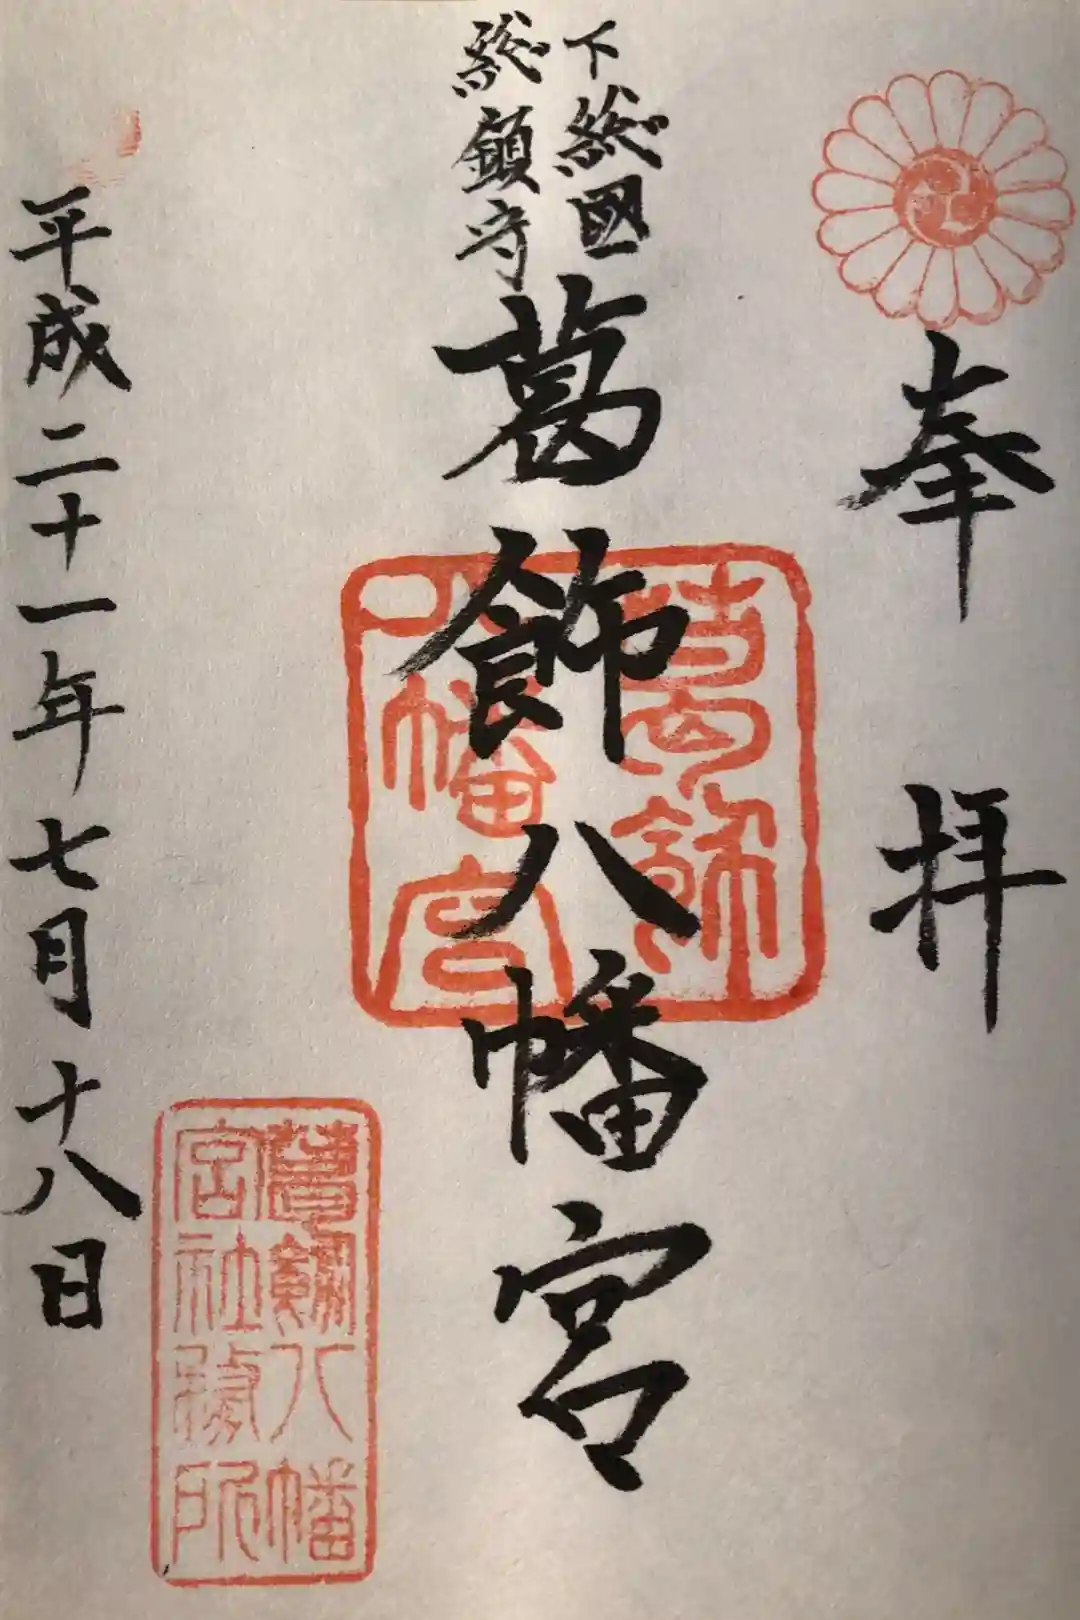 奉拝
下総國
総鎮守
葛飾八幡宮
葛飾
八幡宮
葛飾八幡
宮社務所
平成二十一年七月十八日